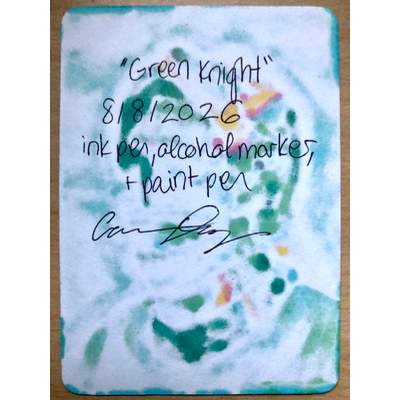 "Green Knight"
8/8/2026
ink pen, alcohol marker,
+ paint pen